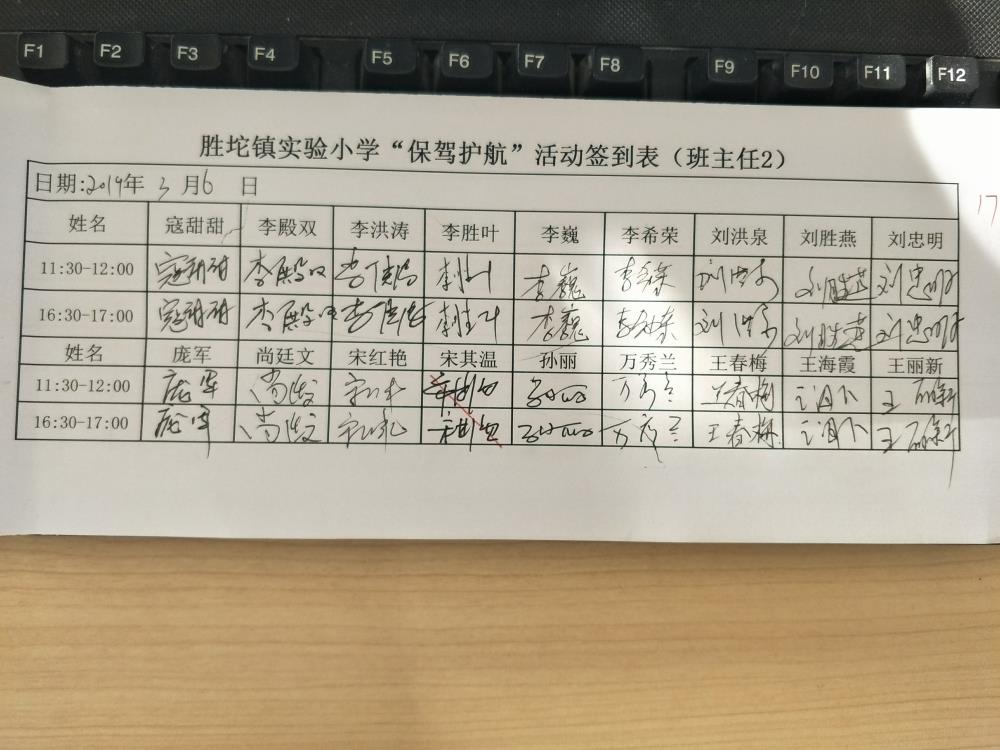 F1 F2 F3 F4 F5 F6 F7 F8 F9 F10 F11 F12
胜坨镇实验小学“保驾护航”活动签到表（班主任2）
日期:2019年 3 月6 日
17
姓名 寇甜甜 李殿双 李洪涛 李胜叶 李巍 李希荣 刘洪泉 刘胜燕 刘忠明
11:30-12:00 寇甜甜 李殿双 李洪涛 李胜叶 李巍 李希荣 刘洪泉 刘胜燕 刘忠明
16:30-17:00 寇甜甜 李殿双 李洪涛 李胜叶 李巍 李希荣 刘洪泉 刘胜燕 刘忠明
姓名 庞军 尚廷文 宋红艳 宋其温 孙丽 万秀兰 王春梅 王海霞 王丽新
11:30-12:00 庞军 尚廷文 宋红艳 宋其温 孙丽 万秀兰 王春梅 王海霞 王丽新
16:30-17:00 庞军 尚廷文 宋红艳 宋其温 孙丽 万秀兰 王春梅 王海霞 王丽新